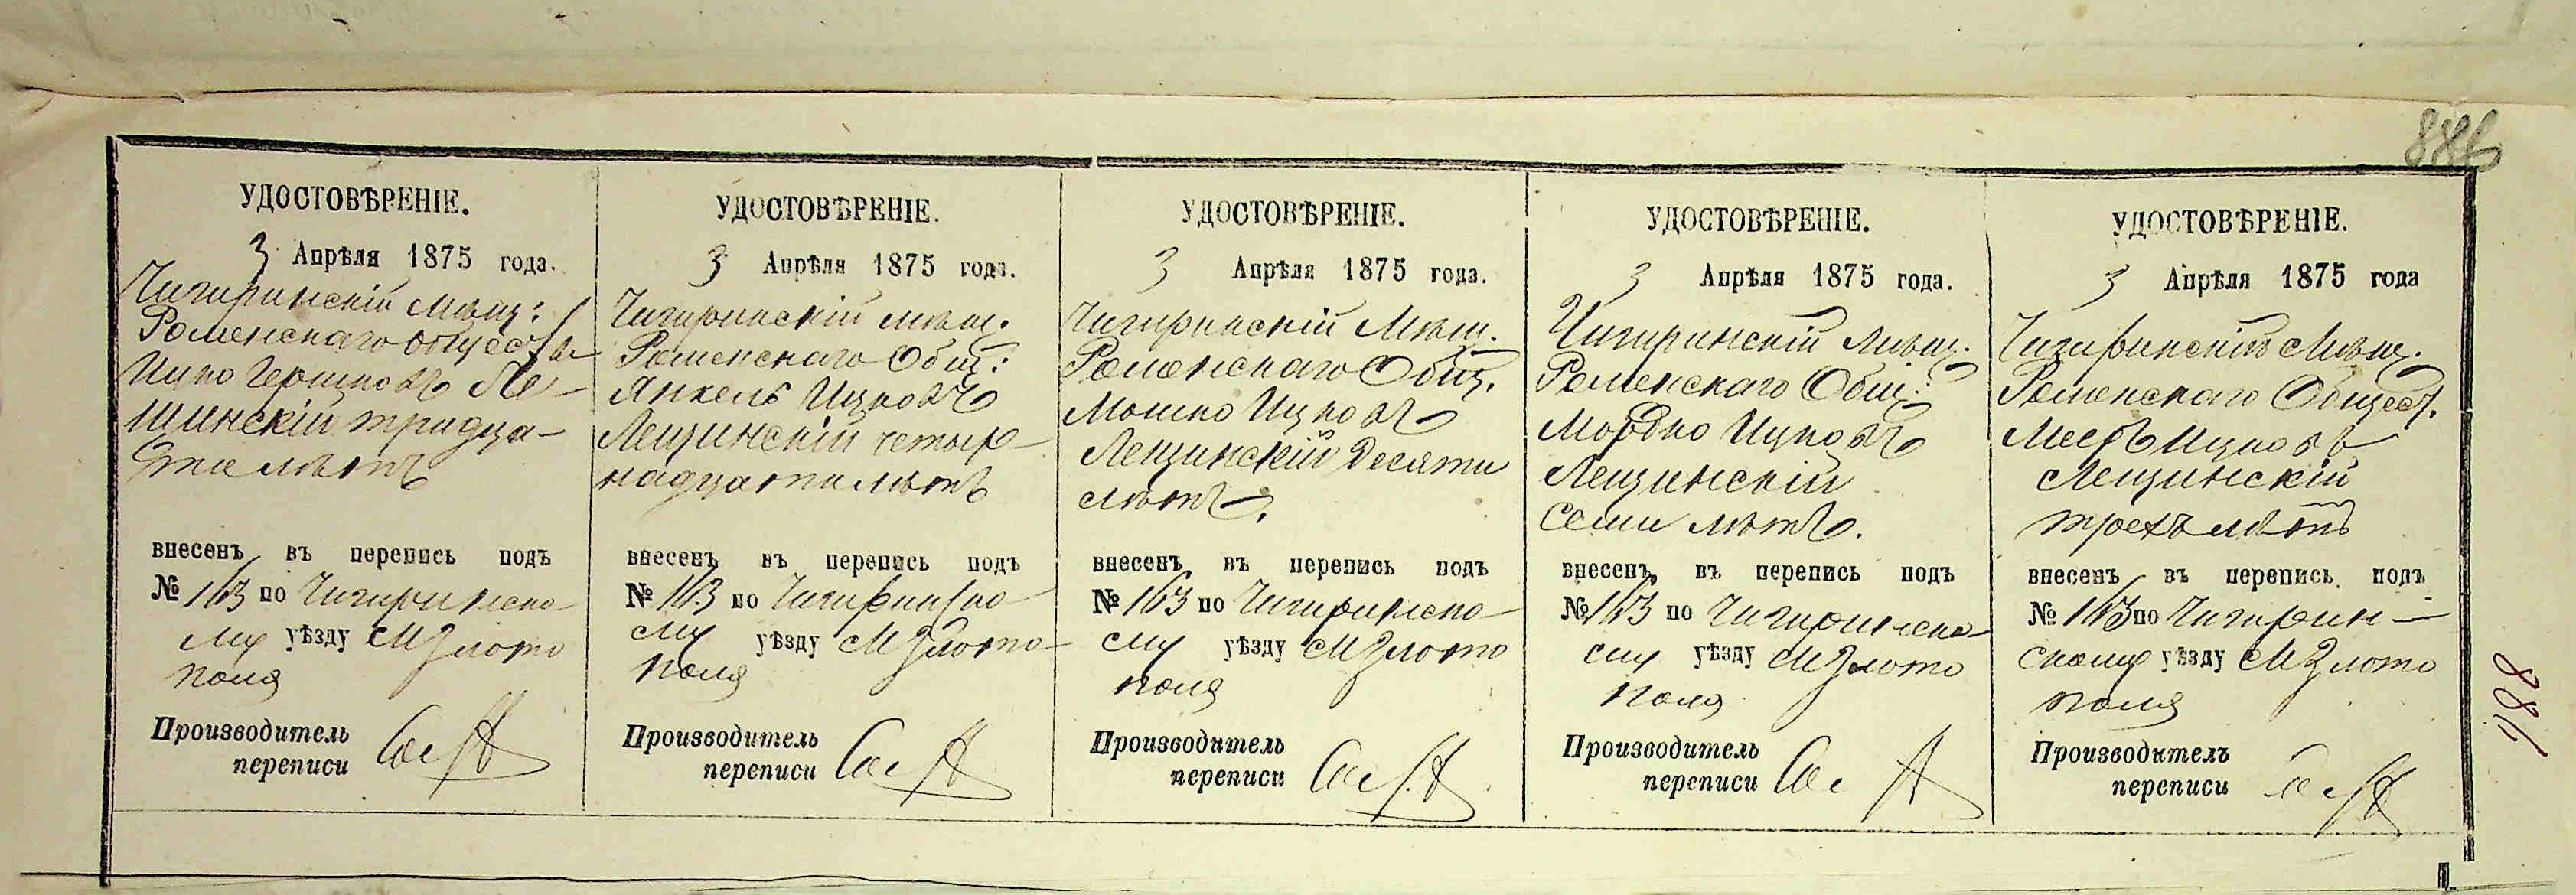 УДОСТОВѢРЕНІЕ.
3 Апрѣля 1875 года.
Чигиринскій мѣщ:
Роменскаго общества
Ицко Гершковъ Ле-
щинскій тридца-
ти лѣтъ
внесенъ въ перепись подъ
№ 163 по Чигиринско-
му уѣзду М Злото
поля
Производитель
переписи
УДОСТОВѢРЕНІЕ.
3 Апрѣля 1875 года.
Чигиринскій мѣщ.
Роменскаго Общ:
Янкель Ицковъ
Лещинскій четыр-
надцати лѣтъ
внесенъ въ перепись подъ
№ 163 по Чигиринско-
му уѣзду М Злото-
поля
Производитель
переписи
УДОСТОВѢРЕНІЕ.
3 Апрѣля 1875 года.
Чигиринскій Мѣщ.
Роменскаго Общ.
Мошко Ицковъ
Лещинскій Десяти
лѣтъ.
внесенъ въ перепись подъ
№ 163 по Чигиринско-
му уѣзду М Злото
поля
Производитель
переписи
УДОСТОВѢРЕНІЕ.
3 Апрѣля 1875 года.
Чигиринскій Мѣщ.
Роменскаго Общ:
Мордко Ицковъ
Лещинскій
Семи лѣтъ.
внесенъ въ перепись подъ
№ 163 по Чигиринско-
му уѣзду М Злото
поля
Производитель
переписи
УДОСТОВѢРЕНІЕ.
3 Апрѣля 1875 года
Чигиринскій Мѣщ.
Роменскаго Общест.
Мееръ Ицковъ
Лещинскій
трехъ лѣтъ
внесенъ въ перепись подъ
№ 163 по Чигирин-
скому уѣзду М Злото
поля
Производитель
переписи